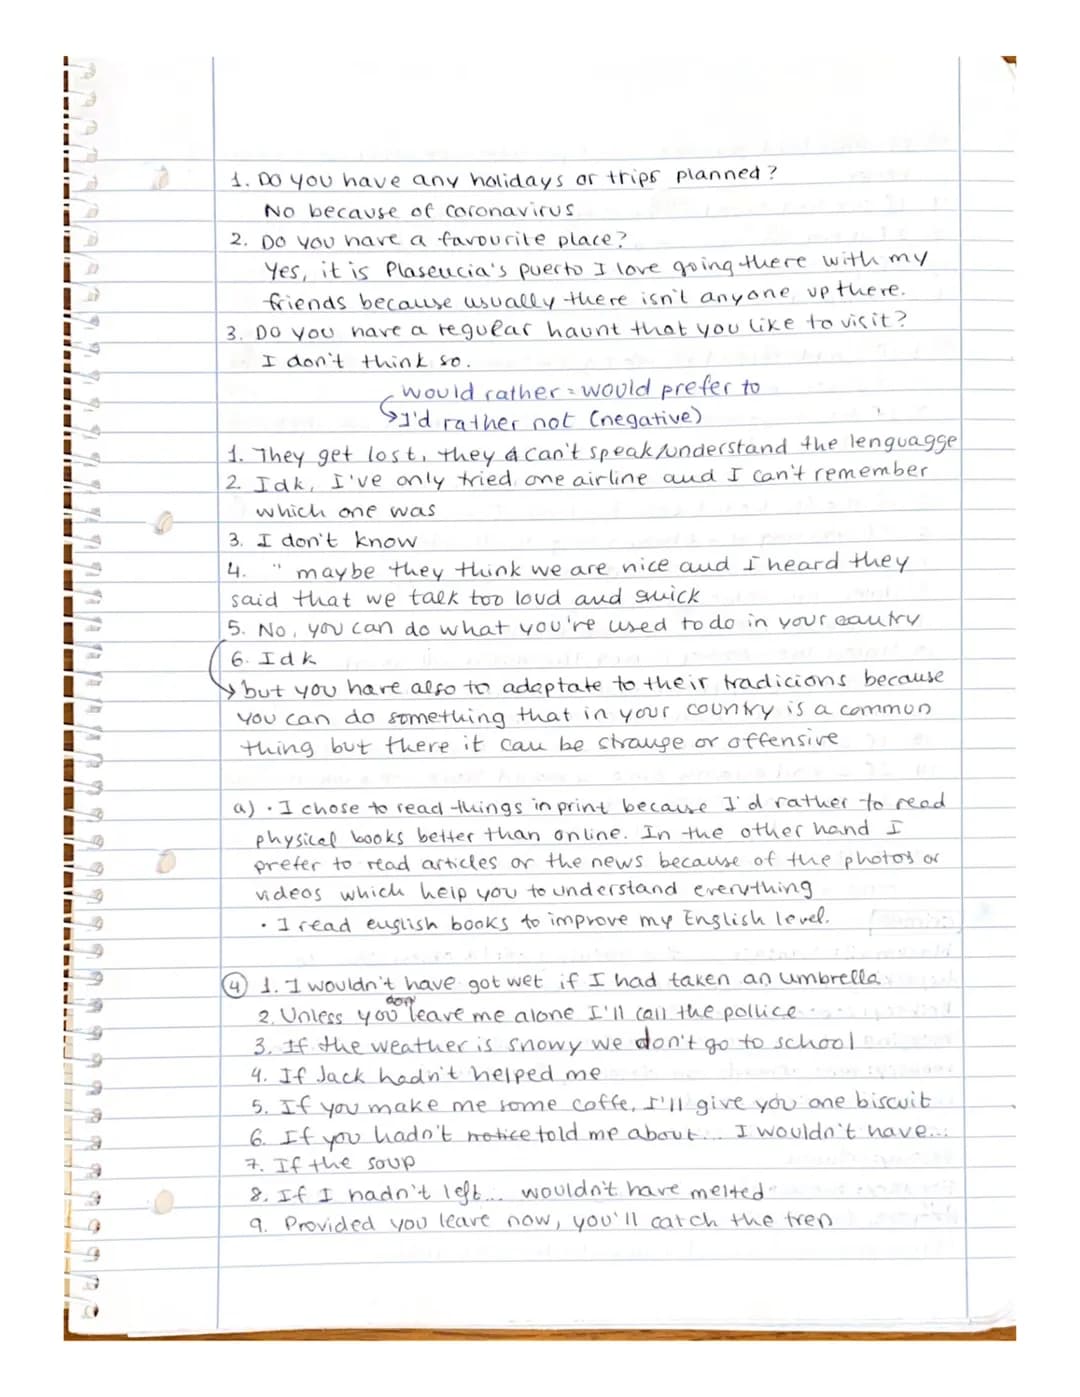 1. Do you have any holidays or trips planned?
No because of coronavirus
2. Do you have a favourite place?
Yes, it is Plasencia's puerto I love going there with my
friends because usually there isn't anyone up there.
3. Do you have a regular haunt that you like to visit?
I don't think so.
would rather = would prefer to
↳I'd rather not (negative)
1. They get lost, they can't speak/understand the lenguagge
2. Idk, I've only tried one airline and I can't remember
which one was
3. I don't know
4. " maybe they think we are nice and I heard they
said that we talk too loud and quick
5. No, you can do what you're used to do in your cauntry
6. Idk
↳but you have also to adaptate to their tradicions because
you can do something that in your country is a common
thing but there it can be strange or offensive
a) · I chose to read things in print because I'd rather to read
physical books better than online. In the other hand I
prefer to read articles or the news because of the photos or
videos which help you to understand everything
· I read english books to improve my English level.
④ 1. I wouldn't have got wet if I had taken an umbrella
2. Unless you don't leave me alone I'll call the pollice
3. If the weather is snowy we don't go to school
4. If Jack hadn't helped me
5. If you make me some coffe, I'll give you one biscuit
6. If you hadn't notice told me about... I wouldn't have...
7. If the soup
8. If I hadn't left... wouldn't have melted
9. Provided you leave now, you'll catch the tren